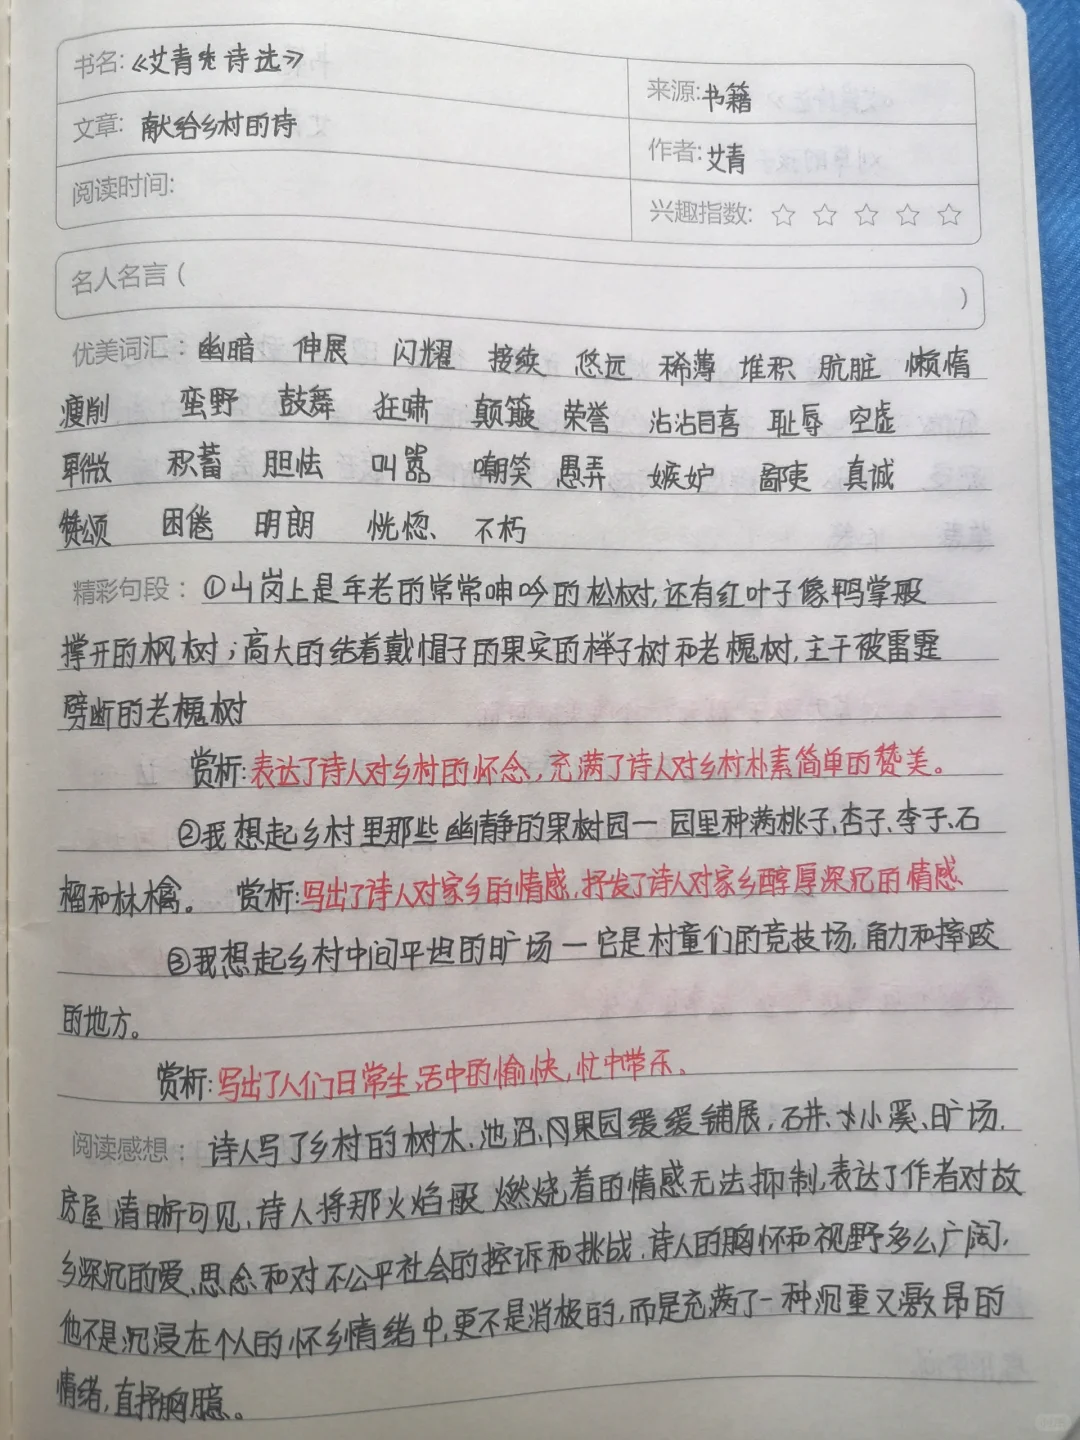 书名:《艾青先诗选》
来源:书籍
文章: 献给乡村的诗
作者:艾青
阅读时间:
兴趣指数: ☆ ☆ ☆ ☆ ☆
名人名言 ( )
优美词汇: 幽暗 伸展 闪耀 接续 悠远 稀薄 堆积 肮脏 懒惰
瘦削 蛮野 鼓舞 狂啸 颠簸 荣誉 沾沾自喜 耻辱 空虚
卑微 积蓄 胆怯 叫嚣 嘲笑 愚弄 嫉妒 鄙夷 真诚
赞颂 困倦 明朗 恍惚、 不朽
精彩句段: ①山岗上是年老的常常呻吟的松树,还有红叶子像鸭掌般
撑开的枫树;高大的结着戴帽子的果实的榉子树和老槐树,主干被雷霆
劈断的老槐树
赏析:表达了诗人对乡村的怀念,充满了诗人对乡村朴素简单的赞美。
②我想起乡村里那些幽静的果树园一园里种满桃子、杏子、李子、石
榴和林檎。 赏析:写出了诗人对家乡的情感,抒发了诗人对家乡醇厚深沉的情感
③我想起乡村中间平坦的旷场一它是村童们的竞技场,角力和摔跤
的地方。
赏析:写出了人们日常生活中的愉快,忙中带乐、
阅读感想: 诗人写了乡村的树木、池沼、果园缓缓铺展,石井、小溪、旷场,
房屋清晰可见,诗人将那火焰般燃烧着的情感无法抑制,表达了作者对故
乡深沉的爱、思念和对不公平社会的控诉和挑战,诗人的胸怀和视野多么广阔,
他不是沉浸在个人的怀乡情绪中,更不是消极的,而是充满了一种沉重又激昂的
情绪,直抒胸臆。